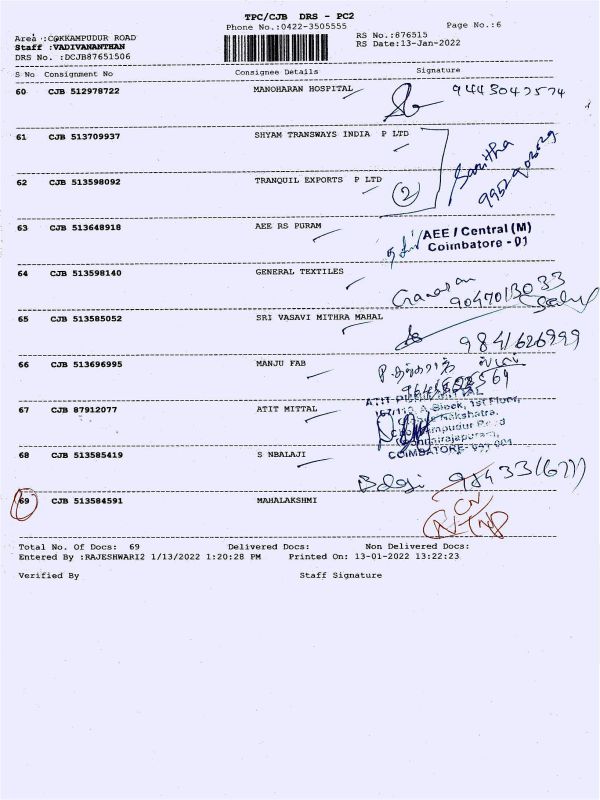 TPC/CJB DRS - PC2
Phone No.:0422-3505555
Page No.:6
Area :COKKAMPUDUR ROAD
RS No.:876515
Staff :VADIVANANTHAN
RS Date:13-Jan-2022
DRS No. :DCJB87651506
S No Consignment No Consignee Details Signature
60 CJB 512978722 MANOHARAN HOSPITAL
61 CJB 513709937 SHYAM TRANSWAYS INDIA P LTD
62 CJB 513598092 TRANQUIL EXPORTS P LTD 2
63 CJB 513648918 AEE RS PURAM
AEE / Central (M)
Coimbatore - 01
64 CJB 513598140 GENERAL TEXTILES
9047013033
65 CJB 513585052 SRI VASAVI MITHRA MAHAL
9841626999
66 CJB 513696995 MANJU FAB
67 CJB 87912077 ATIT MITTAL
COIMBATORE- 641 001
68 CJB 513585419 S NBALAJI
Balaji
69 CJB 513584591 MAHALAKSHMI
Total No. Of Docs: 69 Delivered Docs: Non Delivered Docs:
Entered By :RAJESHWARI2 1/13/2022 1:20:28 PM Printed On: 13-01-2022 13:22:23
Verified By Staff Signature